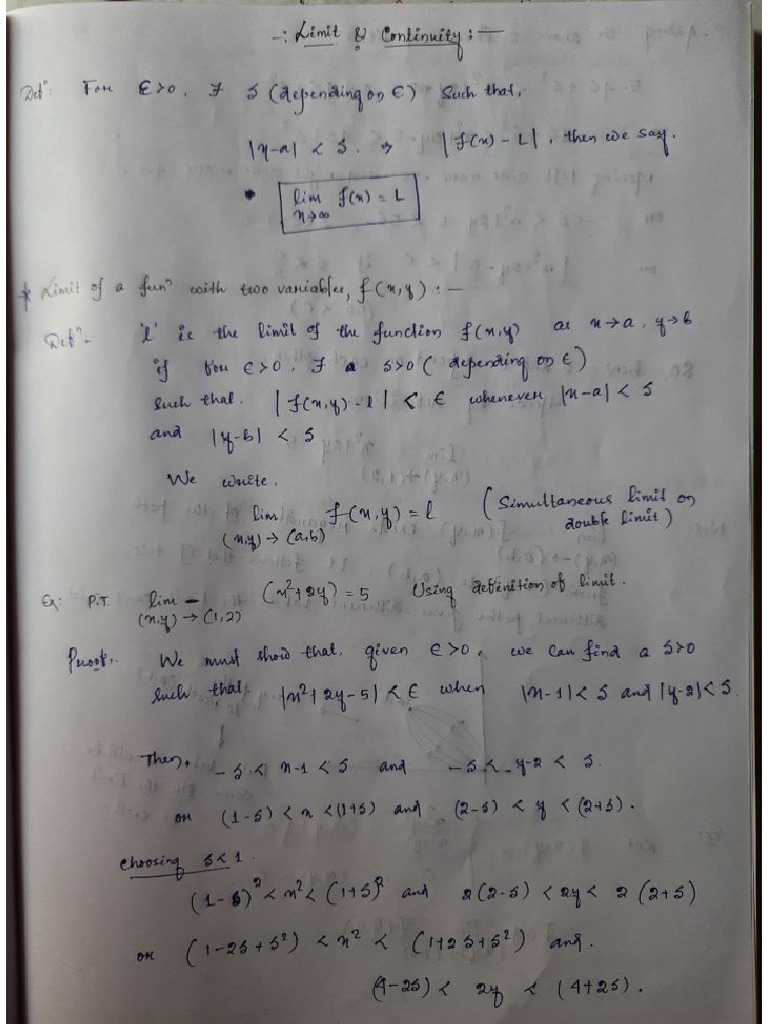 -: Limit & Continuity :-
Defⁿ: For ε>0, ∃ δ (depending on ε) Such that,
|x-a| < δ. ⇒ |f(x) - L|, then we say.
• lim f(x) = L
x→∞
* Limit of a funⁿ with two variables, f(x,y) :-
Defⁿ- 'l' is the limit of the function f(x,y) as x→a, y→b
if for ε>0, ∃ a δ>0 (depending on ε)
such that. |f(x,y) - l| < ε whenever |x-a| < δ
and |y-b| < δ
We write.
lim f(x,y) = l (Simultaneous limit or
(x,y) → (a,b) double limit)
Ex: P.T. lim (x²+2y) = 5 Using definition of limit.
(x,y) → (1,2)
Proof:- We must show that, given ε>0, we can find a δ>0
such that |x²+2y-5| < ε when |x-1| < δ and |y-2| < δ.
Then, -δ < x-1 < δ and -δ < y-2 < δ.
or (1-δ) < x < (1+δ) and (2-δ) < y < (2+δ).
choosing δ<1.
(1-δ)² < x² < (1+δ)² and 2(2-δ) < 2y < 2(2+δ)
or (1-2δ+δ²) < x² < (1+2δ+δ²) and.
(4-2δ) < 2y < (4+2δ).